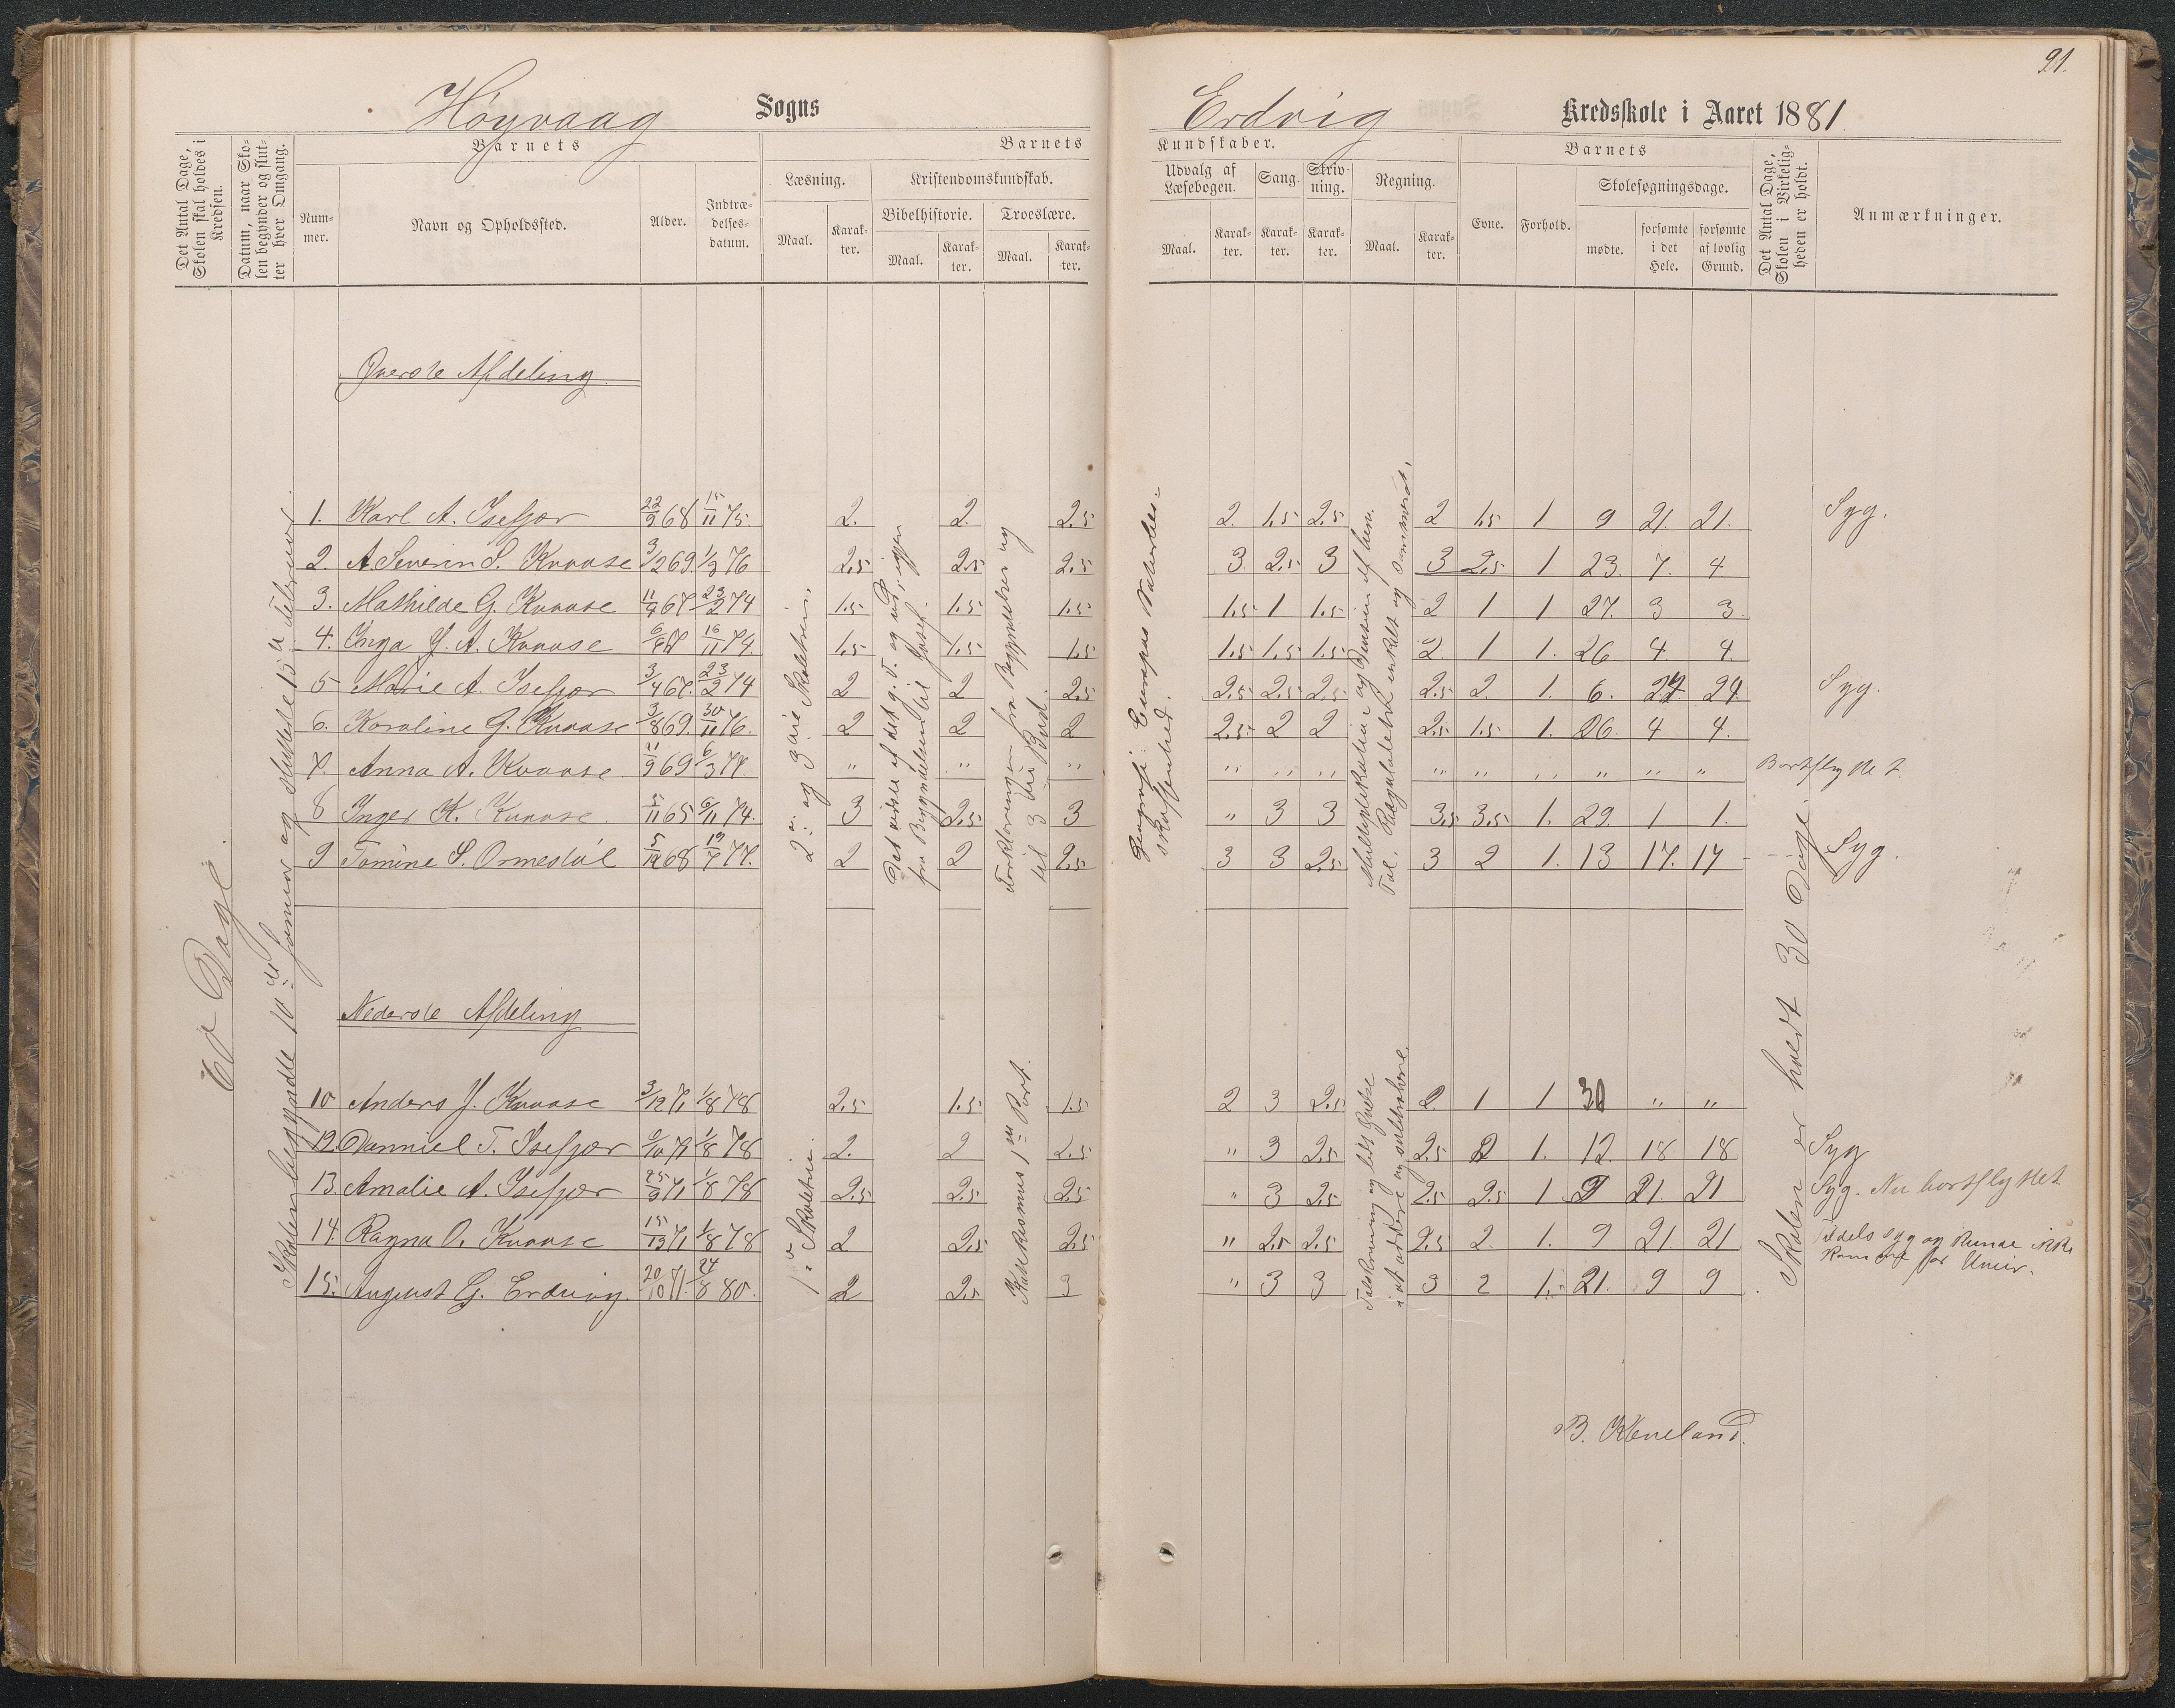 91.
Høyvaag Sogns
Erdvig Kredsskole i Aaret 1881.
Det Antal Dage, Skolen skal holdes i Kredsen.
Datum, naar Skolen begynder og slutter hver Omgang.
Barnets
Nummer.
Navn og Opholdssted.
Alder.
Indtrædelsesdatum.
Barnets
Læsning.
Maal.
Karakter.
Kristendomskundskab.
Bibelhistorie.
Maal.
Karakter.
Troeslære.
Maal.
Karakter.
Kundskaber.
Udvalg af Læsebogen.
Maal.
Karakter.
Sang.
Karakter.
Skrivning.
Karakter.
Regning.
Maal.
Karakter.
Barnets
Evne.
Forhold.
Skolesøgningsdage.
mødte.
forsømte i det Hele.
forsømte af lovlig Grund.
Det Antal Dage, Skolen i Virkeligheden er holdt.
Anmærkninger.
60 Dage.
Skolen begyndte 10de Januar og sluttede 15de Februar.
Øverste Afdeling.
2. og 3die Skoletrin.
Forklaringen fra Begyndelsen og til 3die Bud.
Geografi: Europas Naturbeskaffenhed.
Skolen er holdt 30 Dage.
1. Karl A. Isefjær 22/9 68 15/11 75. 2. 2. 2.5 2. 1.5 2.5 2 1.5 1 9 21. 21. Syg.
2. A. Severin S. Kvaase 3/12 69. 1/3 76 2.5 2.5 2.5 3. 2.5 3 3 2.5 1 23. 7. 4
3. Mathilde G. Kvaase 11/9 67 23/2 74 1.5 1.5 1.5 1.5 1 1.5 2 1 1 27. 3 3.
4. Inga J. A. Kvaase 6/6 67 16/11 74. 1.5 1.5 1.5 1.5 1.5 1.5 2. 1 1. 26 4 4.
5 Marie A. Isefjær 3/4 67. 23/2 74 2 2 2.5 2.5 2.5 2.5 2.5 2. 1. 6. 24 24. Syg.
6. Karoline G. Kvaase 3/8 69. 30/11 76. 2 2 2 2.5 2 2 2.5 1.5 1. 26. 4 4.
7. Anna A. Kvaase 21/9 69 6/3 77. " " " " " " " " " " " " Bortflyttet.
8 Inger K. Kvaase. 11 65 11 74. 3 2.5 3 " 3 3 3.5 3.5 1. 29. 1 1.
9 Tomine S. Ormestøl 5/12 68 19/7 77. 2 2 2.5 3 3 2.5 3 2 1. 13 17. 17 Syg.
Nederste Afdeling
1. Skoletrin
Katekismus 1ste Part.
10 Anders J. Kvaase 3/12 71 1/8 78 2.5 1.5 1.5 2 3 2.5 2. 1 1 30 " "
12. Danniel T. Isefjær 9/10 71 1/8 78 2. 2 2.5 " 3 2.5 2.5 2 1. 12. 18 18 Syg
13. Amalie A. Isefjær 25/9 71 1/8 78 2.5 2.5 2.5 " 3 2.5 2.5 2.5 1 9 21. 21 Syg. Nu bortflyttet
14. Ragna O. Kvaase 71 1/8 78 2 2.5 2.5 " 2.5 2.5 2.5 2. 1. 9 21. 21 Tildels syg og kunde ikke komme for Uveir.
15. August G. Erdvig. 20/10 71. 24/8 80. 2 2.5 3 " 3 3 3 2 1. 21. 9 9
B. Kleveland.